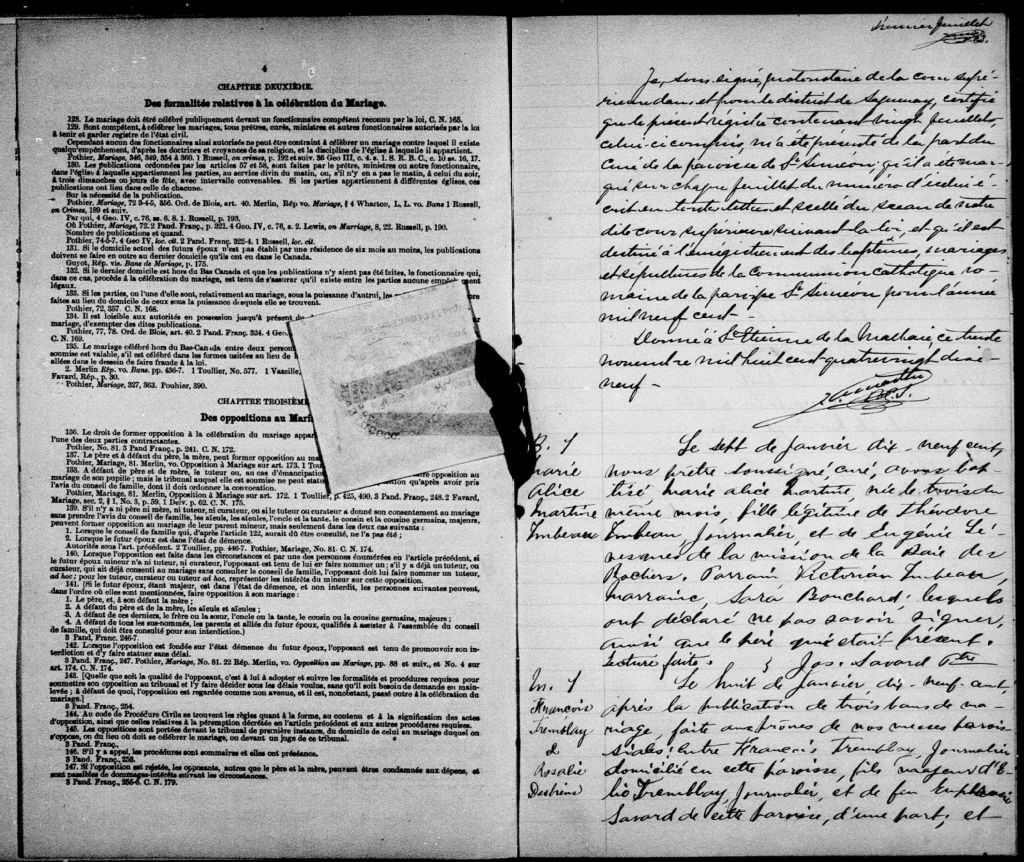 4
CHAPITRE DEUXIÈME.
Des formalités relatives à la célébration du Mariage.
128. Le mariage doit être célébré publiquement devant un fonctionnaire compétent reconnu par la loi, C. N. 165.
129. Sont compétents, à célébrer les mariages, tous prêtres, curés, ministres et autres fonctionnaires autorisés par la loi
à tenir et garder registre de l'état civil.
Cependant aucun des fonctionnaires ainsi autorisés ne peut être contraint à célébrer un mariage contre lequel il existe
quelqu'empêchement, d'après les doctrines et croyances de sa religion, et la discipline de l'église à laquelle il appartient.
Pothier, Mariage, 346, 349, 354 à 360. 1 Russell, on crimes, p. 192 et suiv. 36 Geo III, c. 4, s. 1. S. R. B. C., c. 10 ss. 16, 17.
130. Les publications ordonnées par les articles 57 et 58, sont faites par le prêtre, ministre ou autre fonctionnaire
dans l'église à laquelle appartiennent les parties, au service divin du matin, ou, s'il n'y en a pas le matin, à celui du soir,
à trois dimanches ou jours de fête, avec intervalle convenables. Si les parties appartiennent à différentes églises, ces
publications ont lieu dans celle de chacune.
Sur la nécessité de la publication.
Pothier, Mariage, 72 3-4-5, 356. Ord. de Blois, art. 40. Merlin, Rép vo. Mariage, § 4 Wharton, L. L. vo. Bans 1 Russell,
on Crimes, 189 et suiv.
Par qui, 4 Geo. IV, c. 76, ss. 6. 8. 1. Russell, p. 193.
Où Pothier, Mariage, 72. 2 Pand. Franç., p. 321. 4 Geo. IV, c. 76, s. 2. Lewis, on Marriage, 8, 22. Russell, p. 190.
Nombre de publications et quand.
Pothier, 74-5-7. 4 Geo IV, loc. cit. 2 Pand. Franç. 322-4. 1 Russell, loc. cit.
131. Si le domicile actuel des futurs époux n'est pas établi par une résidence de six mois au moins, les publications
doivent se faire en outre au dernier domicile qu'ils ont eu dans le Canada.
Guyot, Rép. vis. Bans de Mariage, p. 175.
132. Si le dernier domicile est hors du Bas Canada et que les publications n'y aient pas été faites, le fonctionnaire qui,
dans ce cas, procède à la célébration du mariage, est tenu de s'assurer qu'il existe entre les parties aucune
légaux.
133. Si les parties, ou l'une d'elle sont, relativement au mariage, sous la puissance d'autrui, les
faites au lieu du domicile de ceux sous la puissance desquels elle se trouvent.
Pothier, 72, 357. C. N. 168.
134. Il est loisible aux autorités en possession jusqu'à présent du
mariage, d'exempter des dites publications.
Pothier, 77, 78. Ord. de Blois, art. 40. 2 Pand. Franç. 324. 4 Geo.
C. N. 169.
135. Le mariage célébré hors du Bas-Canada entre deux personnes
soumise est valable, s'il est célébré dans les formes usitées au lieu de
allées dans le dessein de faire fraude à la loi.
2. Merlin Rép. vo. Bans. pp. 436-7. 1 Toullier, No. 577. 1 Vazeille,
Favard, Rép., p. 30.
Pothier, Mariage, 327, 363. Pouhier, 390.
CHAPITRE TROISIÈME
Des oppositions au Mari
136. Le droit de former opposition à la célébration du mariage appar
l'une des deux parties contractantes.
Pothier, No. 81. 3 Pand Franç., p. 241. C. N. 172.
137. Le père et à défaut du père, la mère, peut former opposition au
Pothier, Mariage, 81. Merlin, vo. Opposition à Mariage sur art. 173. 1 Toul
138. A défaut de père et de mère, le tuteur ou, au cas d'émancipation, opposition au
mariage de son pupille; mais le tribunal auquel elle est soumise ne peut qu'après avoir pris
l'avis du conseil de famille, dont il doit ordonner la convocation.
Pothier, Mariage, 81. Merlin, Opposition à Mariage sur art. 172. 1 Toullier, p. 425, 490. 3 Pand Franç., 248. 2 Favard,
Mariage, sec. 2, § 1, No. 3, p. 59. 1 Delv. p. 62. C. N. 175.
139. S'il n'y a ni père ni mère, ni tuteur, ni curateur, ou si le tuteur ou curateur a donné son consentement au mariage
sans prendre l'avis du conseil de famille, les aïeuls, les aïeules, l'oncle et la tante, le cousin et la cousine germains, majeurs,
peuvent former opposition au mariage de leur parent mineur, mais seulement dans les deux cas suivants;
1. Lorsque le conseil de famille qui, d'après l'article 122, aurait dû être consulté, ne l'a pas été;
2. Lorsque le futur époux est dans l'état de démence.
Autorités sous l'art. précédent. 2 Toullier, pp. 446-7. Pothier, Mariage, No. 81. C. N. 174.
140. Lorsque l'opposition est faite dans les circonstances et par une des personnes énumérées en l'article précédent, si
le futur époux mineur n'a ni tuteur, ni curateur, l'opposant est tenu de lui en faire nommer un; s'il y a déjà un tuteur, ou
curateur, qui ait déjà consenti au mariage sans consulter le conseil de famille, l'opposant doit lui faire nommer un tuteur,
ad hoc; pour les tuteur, curateur ou tuteur ad hoc, représenter les intérêts du mineur sur cette opposition.
141. (Si le futur époux, étant majeur, est dans l'état de démence, et non interdit, les personnes suivantes peuvent,
dans l'ordre où elles sont mentionnées, faire opposition à son mariage:
1. Le père, et, à son défaut la mère;
2. A défaut du père et de la mère, les aïeuls et aïeules;
3. A défaut de ces derniers, le frère ou la sœur, l'oncle ou la tante, le cousin ou la cousine germains, majeurs;
4. A défaut de tous les sus-nommés, les parents et alliés du futur époux, qualifiés à assister à l'assemblée du conseil
de famille, qui doit être consulté pour son interdiction.)
3 Pand. Franç. 246-7.
142. Lorsque l'opposition est fondée sur l'état démence du futur époux, l'opposant est tenu de promouvoir son in-
terdiction et d'y faire statuer sans délai.
3 Pand. Franç., 247. Pothier, Mariage, No. 81. 22 Rép. Merlin, vo. Opposition au Mariage, pp. 88 et suiv., et No. 4 sur
art. 174. C. N. 174.
143. [Quelle que soit la qualité de l'opposant, c'est à lui à adopter et suivre les formalités et procédures requises pour
soumettre son opposition au tribunal et l'y faire décider sous les délais voulus, sans qu'il soit besoin de demande en main-
levée; à défaut de quoi, l'opposition est regardée comme non avenue, et il est, nonobstant, passé outre à la célébration du
mariage.]
3 Pand. Franç., 254.
144. Au code de Procédure Civile se trouvent les règles quant à la forme, au contenu et à la signification des actes
d'opposition, ainsi que celles relatives à la péremption décrétée en l'article précédent et aux autres procédures requises.
145. Les oppositions sont portées devant le tribunal de première instance, du domicile de celui au mariage duquel on
s'oppose, ou du lieu où doit se célébrer le mariage, ou devant un juge de ce tribunal.
3 Pand. Franç.,
146. S'il y a appel, les procédures sont sommaires et elles ont préséance.
3 Pand. Franç., 258.
147. Si l'opposition est rejetée, les opposants, autres que le père et la mère, peuvent être condamnés aux dépens, et
sont passibles de dommages-intérêts suivant les circonstances.
3 Pand. Franç., 255-6. C. N. 179.
Premier feuillet
Je, sous signé, protonotaire de la cour supé-
rieure dans et pour le district de Saguenay, certifie
que le présent régistre contenant vingt feuillets,
celui-ci compris, m'a été présenté de la part du
Curé de la paroisse de St Siméon; qu'il a été mar-
qué sur chaque feuillet du numéro d'icelui é-
crit en toutes lettres et scellé du sceau de notre
dite cour supérieure suivant la loi, et qu'il est
destiné à l'enrégistrement des baptêmes, mariages
et sépultures de la communion catholique ro-
maine de la paroisse St Siméon pour l'année
mil neuf cent -
Donné à St Etienne de la Malbaie, ce trente
novembre mil huit cent quatre vingt dix
neuf -
P.C.S.
B. 1
Marie
Alice
Martine
Imbeau
Le sept de Janvier dix neuf cent,
nous prêtre soussigné curé, avons bap
tisé marie alice martine, née le trois du
même mois, fille légitime de Théodore
Imbeau, journalier, et de Eugénie Lé-
vesques de la mission de la Baie des
Rochers. Parrain, Victorian Imbeau,
marraine, Sara Bouchard; lesquels
ont déclaré ne pas savoir signer,
ainsi que le père qui était présent.
Lecture faite. Jos. Savard Ptre
M. 1
Francois
Tremblay
&
Rosalie
Desbiens
Le huit de Janvier, dix-neuf-cent,
après la publication de trois bans de ma-
riage, faite au prône de nos messes parois
siales: entre Francois Tremblay, Journalier
domicilié en cette paroisse, fils majeur d'E-
lie Tremblay, Journalier, et de feu Euphrasie
Savard de cette paroisse, d'une part; et